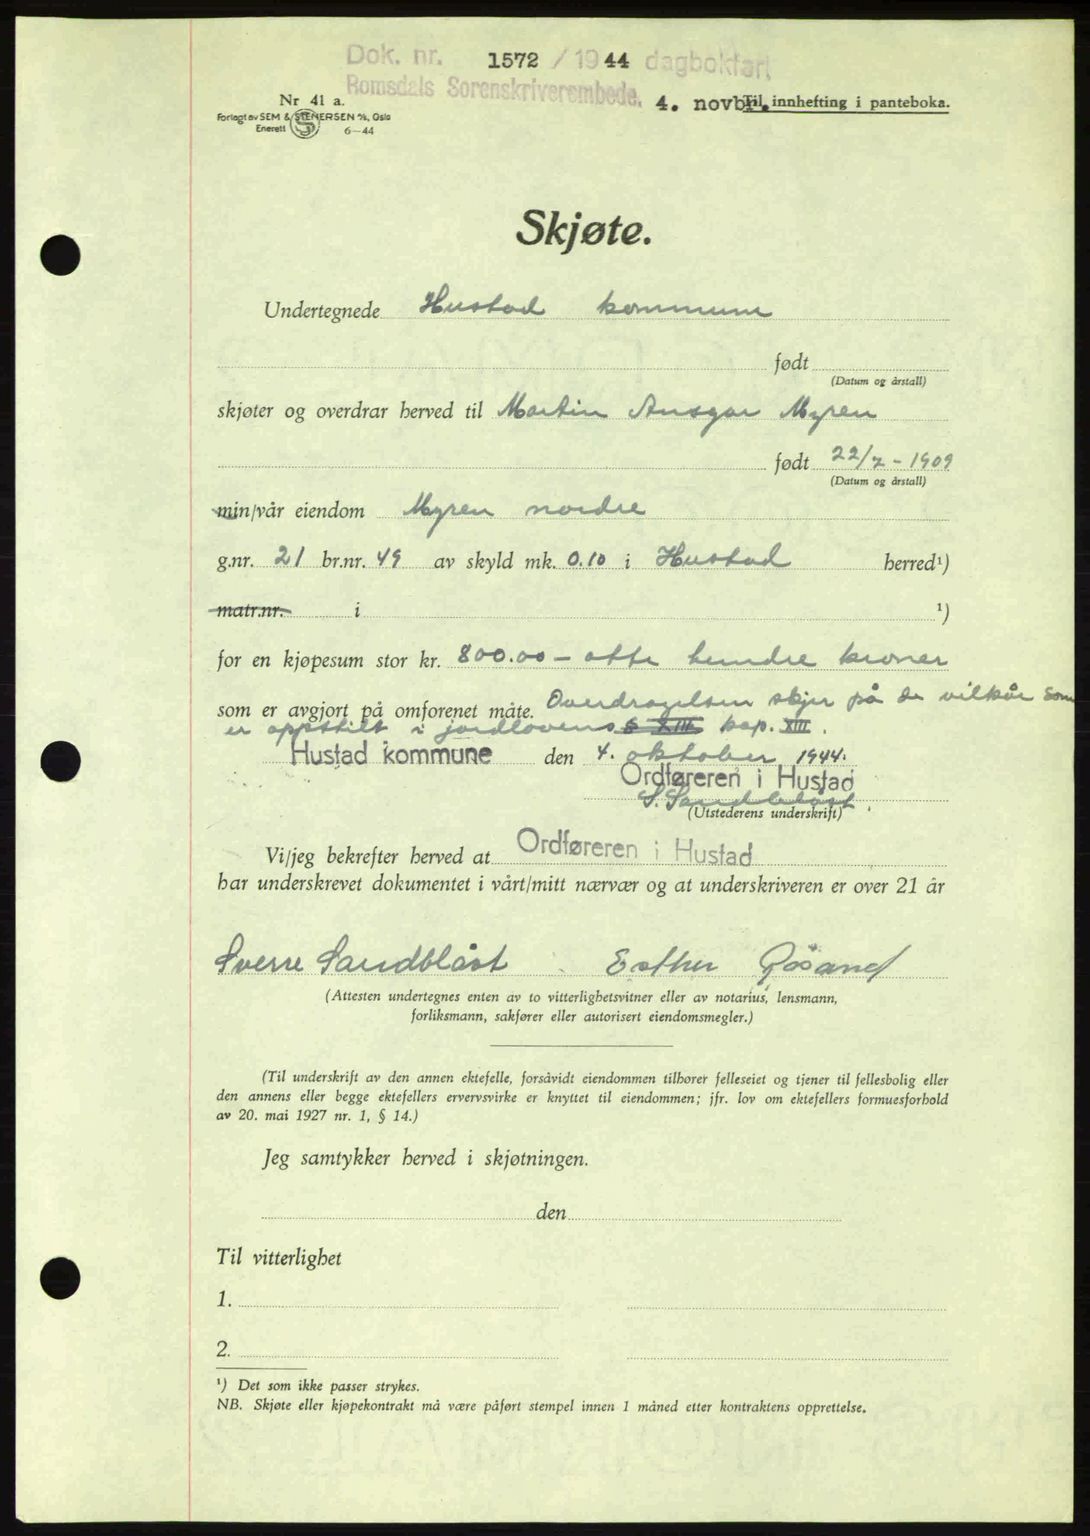 Dok. nr. 1572 / 1944 dagbokført
Romsdals Sorenskriverembede. 4. novbr. Til innhefting i panteboka.
Nr 41 a.
Forlagt av SEM & STENERSEN A/S, Oslo
Enerett S 6-44
Skjøte.
Undertegnede Hustad kommune
født
(Datum og årstall)
skjøter og overdrar herved til Martin Ansgar Myren
født 22/7-1909
(Datum og årstall)
min/vår eiendom Myren nordre
g.nr. 21 br.nr. 49 av skyld mk. 0.10 i Hustad herred¹)
matr.nr. i ¹)
for en kjøpesum stor kr. 800.00 - otte hundre kroner
som er avgjort på omforenet måte. Overdragelsen skjer på de vilkår som
er oppstilt i jordlovens § XIII kap. XIII.
Hustad kommune den 4. oktober 1944.
Ordføreren i Hustad
S. Sandblåst.
(Utstederens underskrift)
Vi/jeg bekrefter herved at Ordføreren i Hustad
har underskrevet dokumentet i vårt/mitt nærvær og at underskriveren er over 21 år
Sverre Sandblåst Esther
(Attesten undertegnes enten av to vitterlighetsvitner eller av notarius, lensmann,
forliksmann, sakfører eller autorisert eiendomsmegler.)
(Til underskrift av den annen ektefelle, forsåvidt eiendommen tilhører felleseiet og tjener til fellesbolig eller
den annens eller begge ektefellers ervervsvirke er knyttet til eiendommen; jfr. lov om ektefellers formuesforhold
av 20. mai 1927 nr. 1, § 14.)
Jeg samtykker herved i skjøtningen.
den
Til vitterlighet
1.
2.
¹) Det som ikke passer strykes.
NB. Skjøte eller kjøpekontrakt må være påført stempel innen 1 måned etter kontraktens opprettelse.